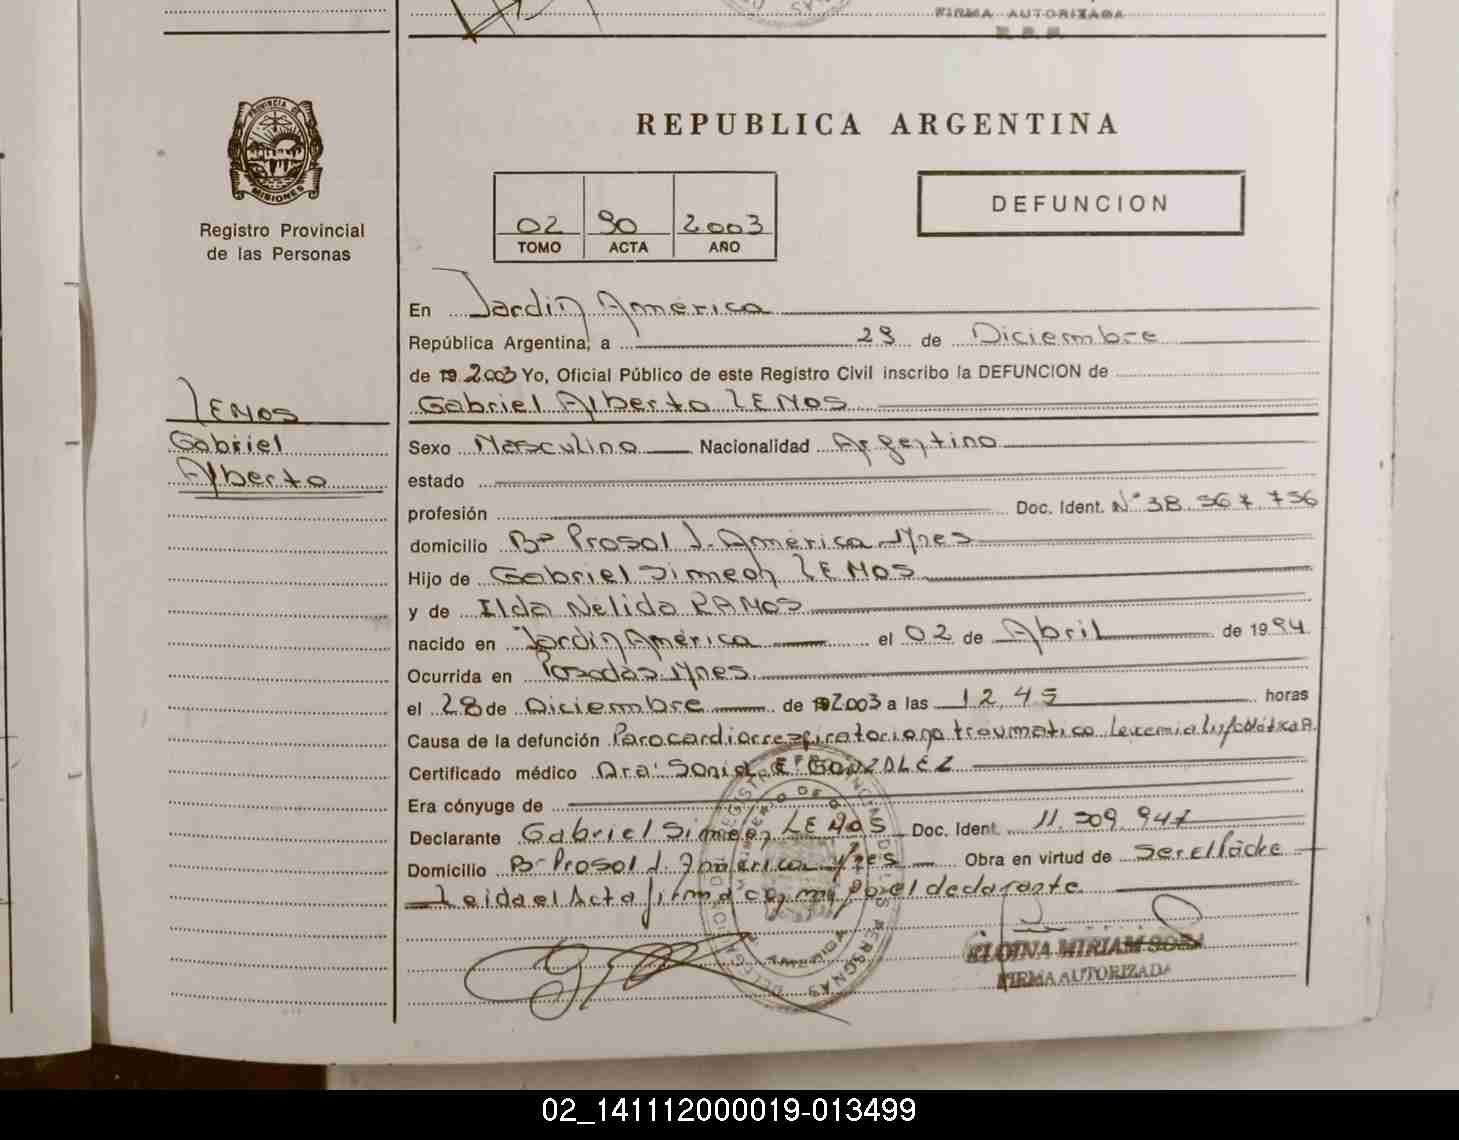 FIRMA AUTORIZADA
PROVINCIA DE
MISIONES
Registro Provincial
de las Personas
REPUBLICA ARGENTINA
02 90 2003
TOMO ACTA AÑO
DEFUNCION
En Jardin América
República Argentina, a 29 de Diciembre
de 19 2003 Yo, Oficial Público de este Registro Civil inscribo la DEFUNCION de
Gabriel Alberto LEMOS
LEMOS
Gabriel
Alberto
Sexo Masculino Nacionalidad Argentino
estado
profesión Doc. Ident. N° 38.567.756
domicilio B° Prosol J. América Mnes
Hijo de Gabriel Simeon LEMOS
y de Ilda Nelida RAMOS
nacido en Jardin América el 02 de Abril de 1994
Ocurrida en Posadas Mnes
el 28 de Diciembre de 19 2003 a las 12,45 horas
Causa de la defunción Parocardiorrespiratorio no traumatico Leucemia
Certificado médico Dra. Sonia E. GONZALEZ
Era cónyuge de
Declarante Gabriel Simeon LEMOS Doc. Ident. 11.309.947
Domicilio B° Prosol J. América Mnes Obra en virtud de Ser el Padre
Leida el Acta firma conmigo el declarante
ELOINA MIRIAM SOSA
FIRMA AUTORIZADA
02_141112000019-013499